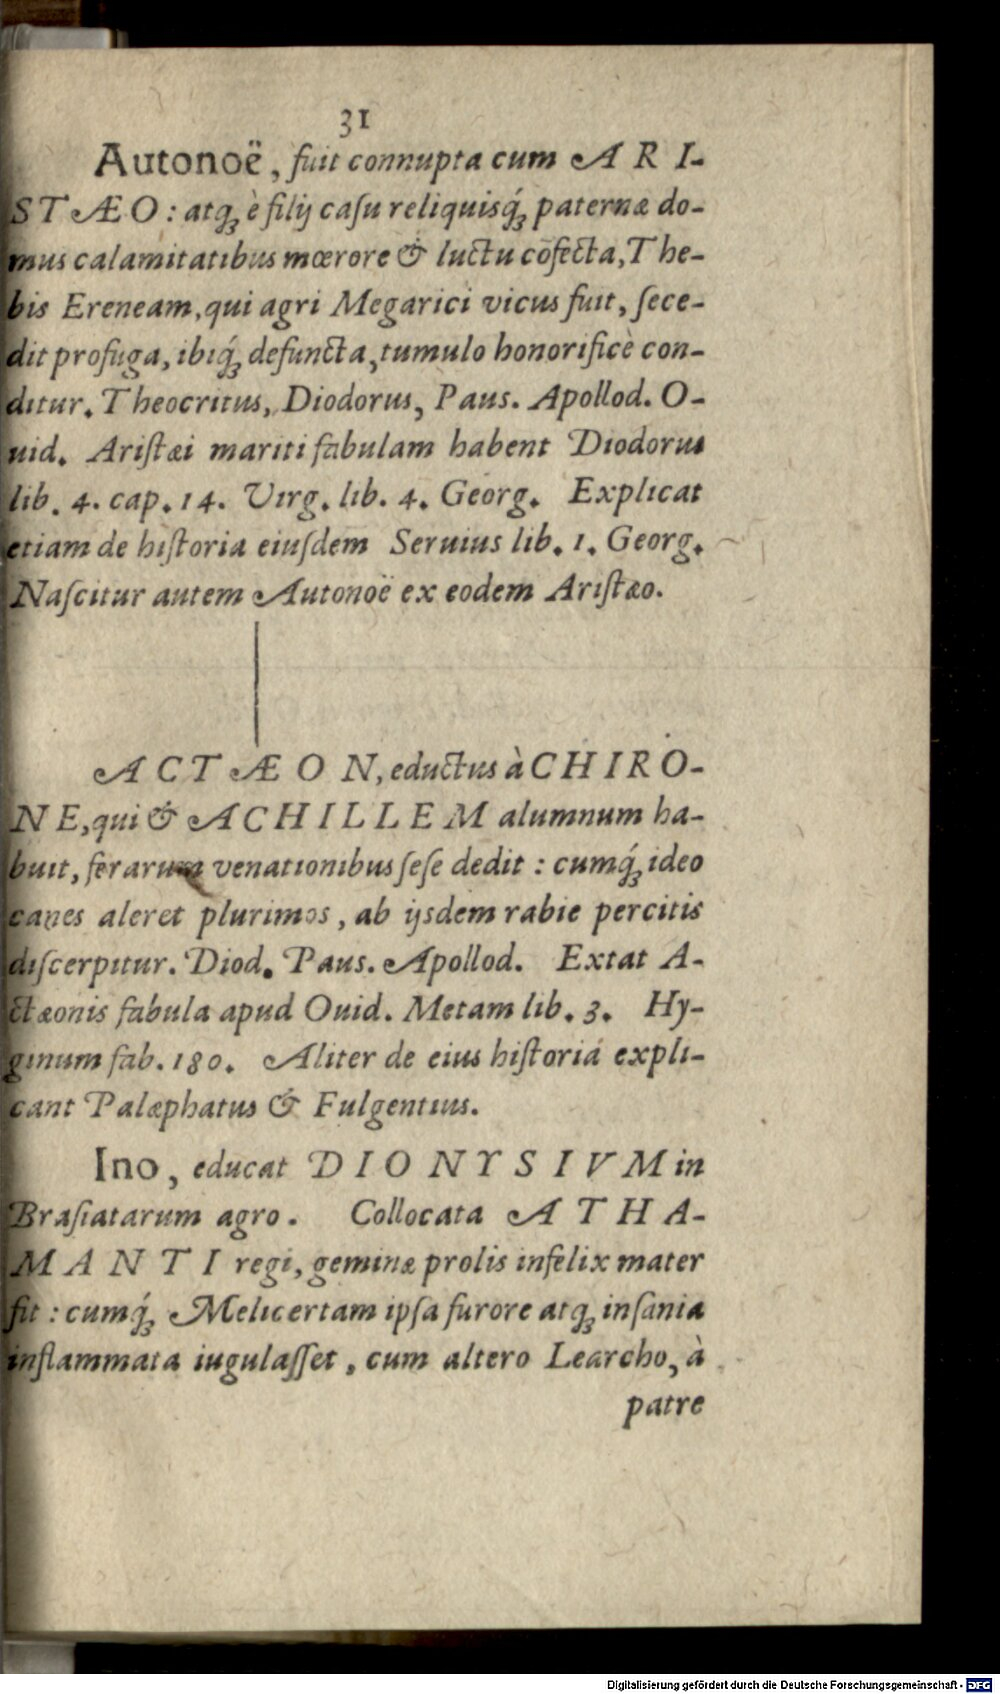 31
Autonoë, fuit connupta cum ARI-
STÆO: atq́ꝫ è filij caſu reliquisq́ꝫ paternæ do-
mus calamitatibus mœrore & luctu cōfecta, The-
bis Ereneam, qui agri Megarici vicus fuit, ſece-
dit profuga, ibiq́ꝫ defuncta, tumulo honorificè con-
ditur. Theocritus, Diodorus, Paus. Apollod. O-
uid. Ariſtæi mariti fabulam habent Diodorus
lib. 4. cap. 14. Virg. lib. 4. Georg. Explicat
etiam de hiſtoria eiuſdem Seruius lib. 1. Georg.
Naſcitur autem Autonoë ex eodem Ariſtæo.
ACTÆON, eductus à CHIRO-
NE, qui & ACHILLEM alumnum ha-
buit, ferarum venationibus ſeſe dedit: cumq́ꝫ ideo
canes aleret plurimos, ab ijsdem rabie percitis
diſcerpitur. Diod. Paus. Apollod. Extat A-
ctæonis fabula apud Ouid. Metam lib. 3. Hy-
ginum fab. 180. Aliter de eius hiſtoriá expli-
cant Palæphatus & Fulgentius.
Ino, educat DIONYSIVM in
Braſiatarum agro. Collocata ATHA-
MANTI regi, geminæ prolis infelix mater
fit: cumq́ꝫ Melicertam ipſa furore atqꝫ inſania
inflammata iugulaſſet, cum altero Learcho, à
patre
Digitalisierung gefördert durch die Deutsche Forschungsgemeinschaft - DFG